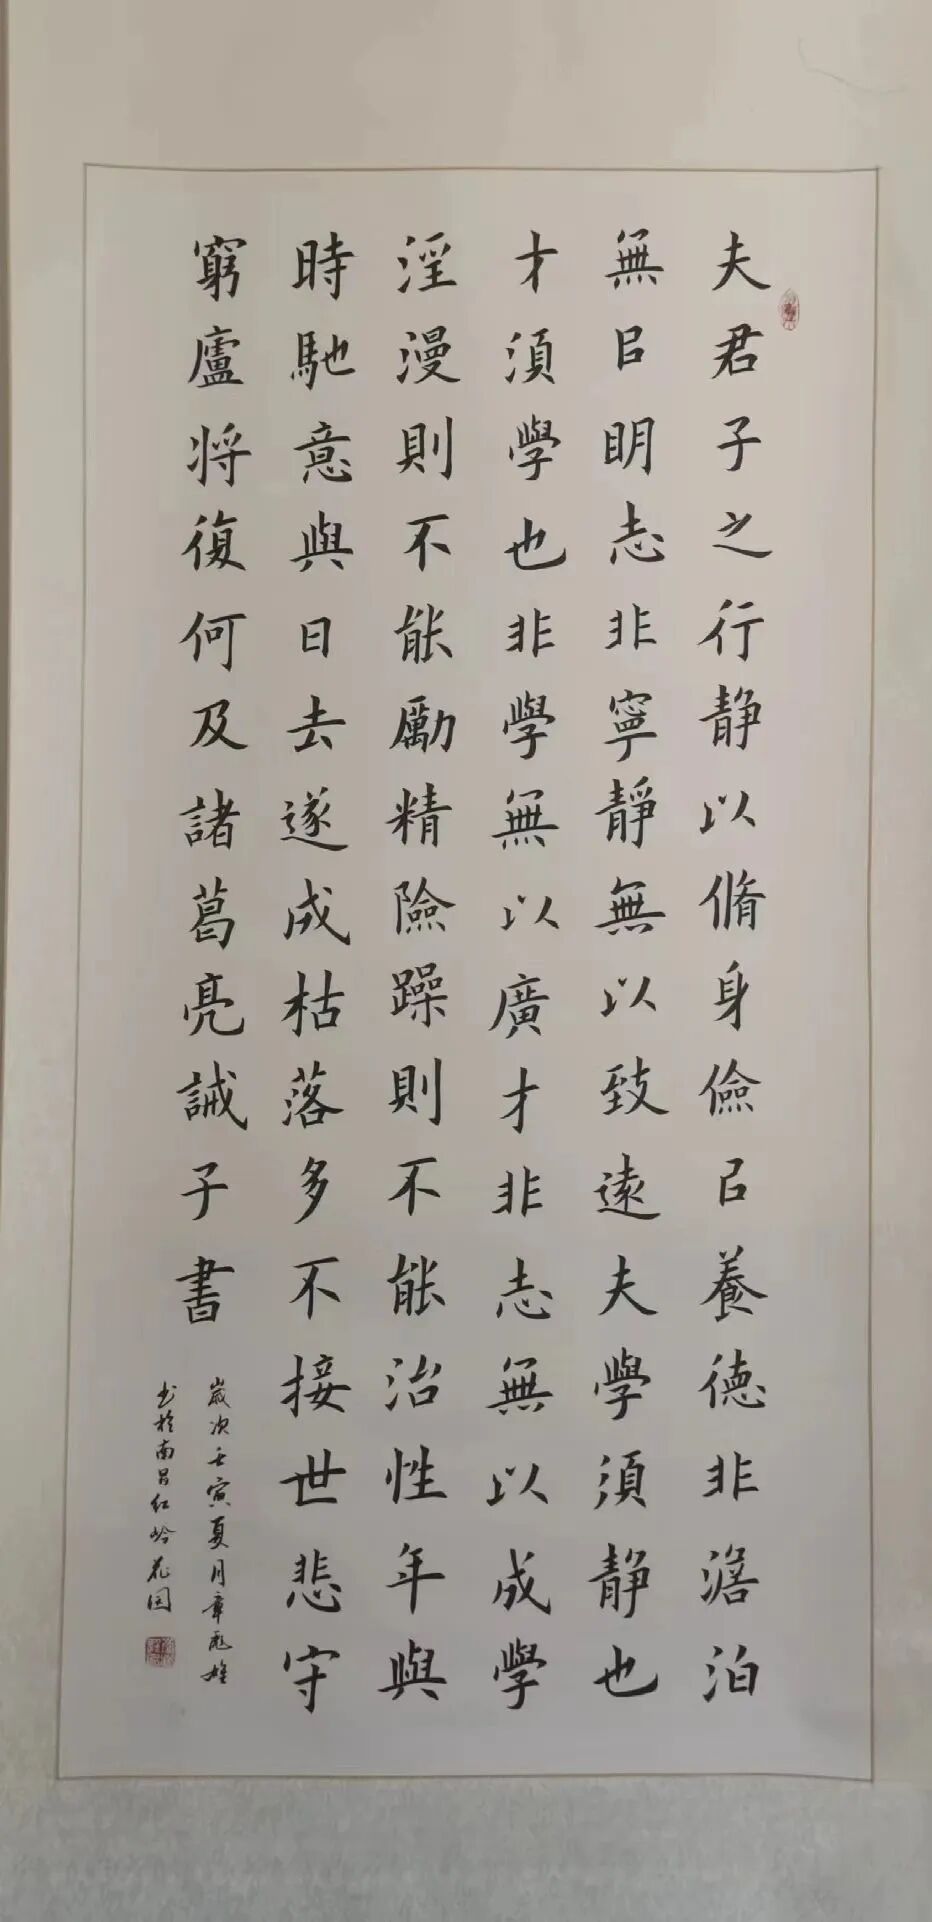 夫君子之行静以脩身儉㠯養徳非澹泊
無㠯眀志非寧靜無以致遠夫學須静也
才須學也非學無以廣才非志無以成學
淫漫則不能勵精險躁則不能治性年與
時馳意與日去遂成枯落多不接世悲守
窮廬将復何及諸葛亮誡子書
歲次壬寅夏月章
书於南昌红岭花园